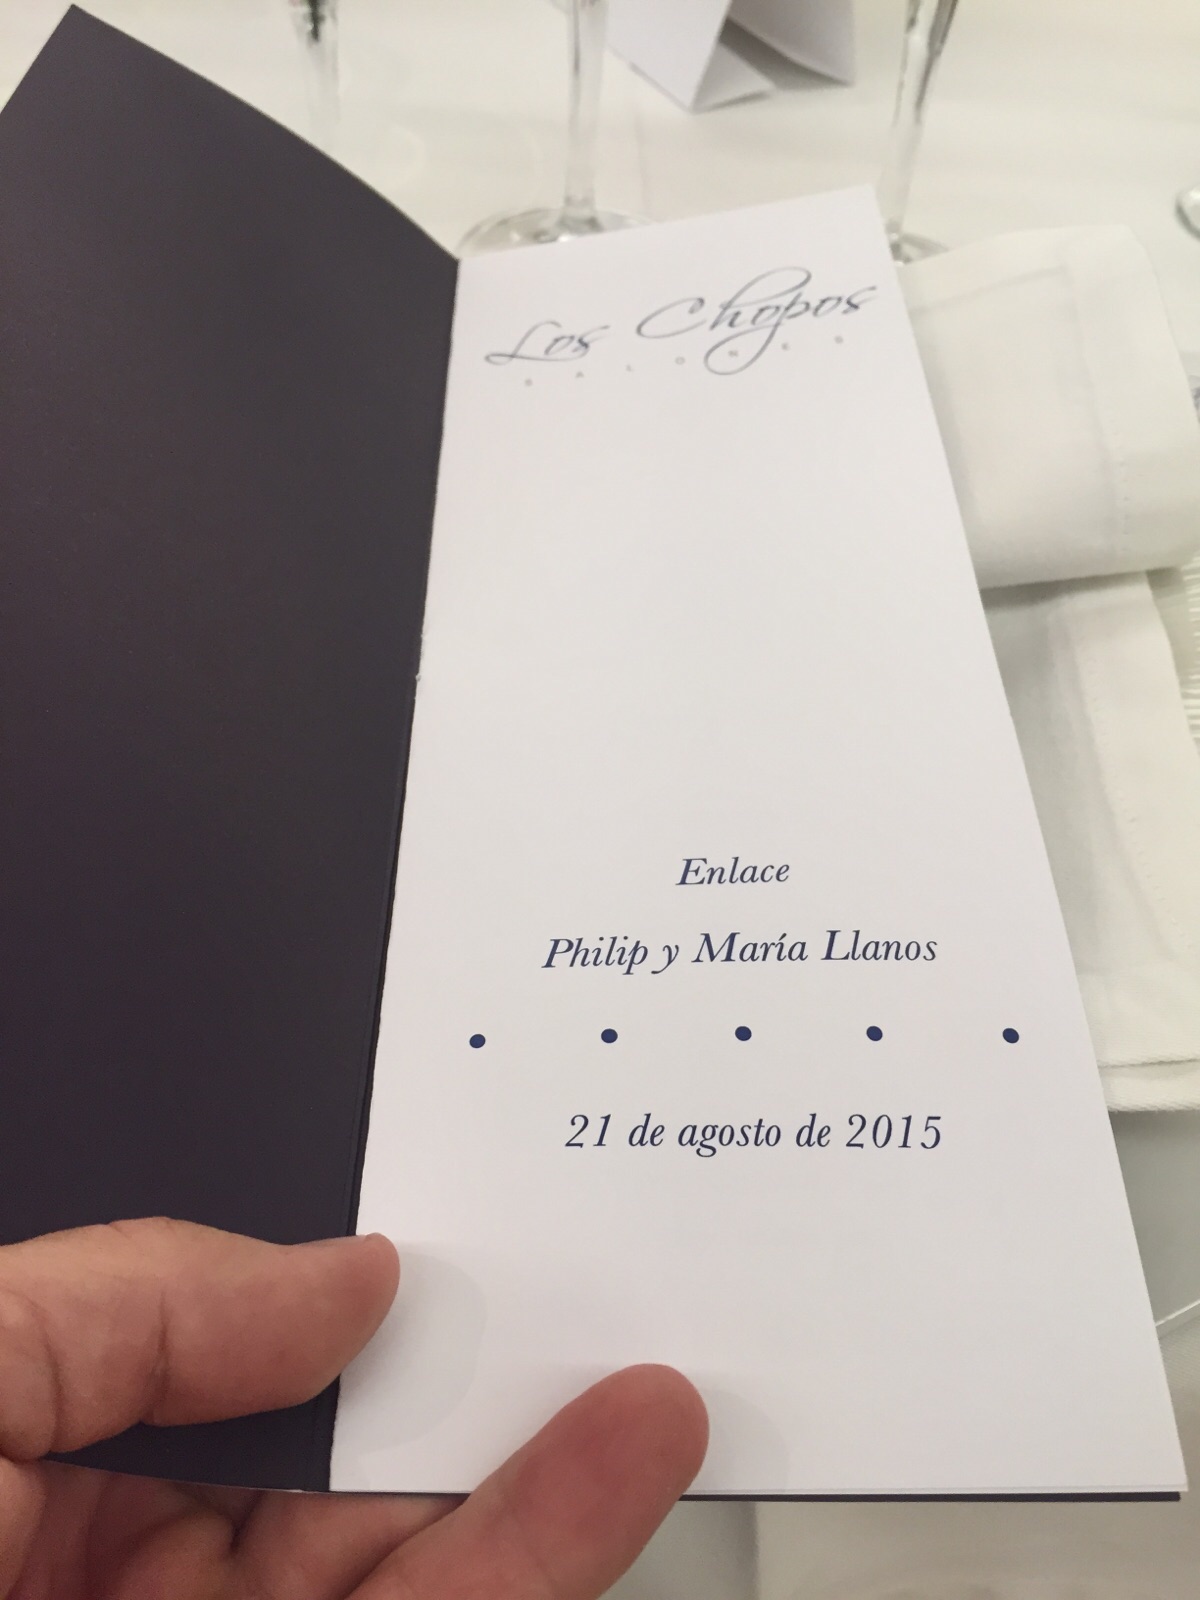 Los Chopos
SALONES
Enlace
Philip y María Llanos
21 de agosto de 2015